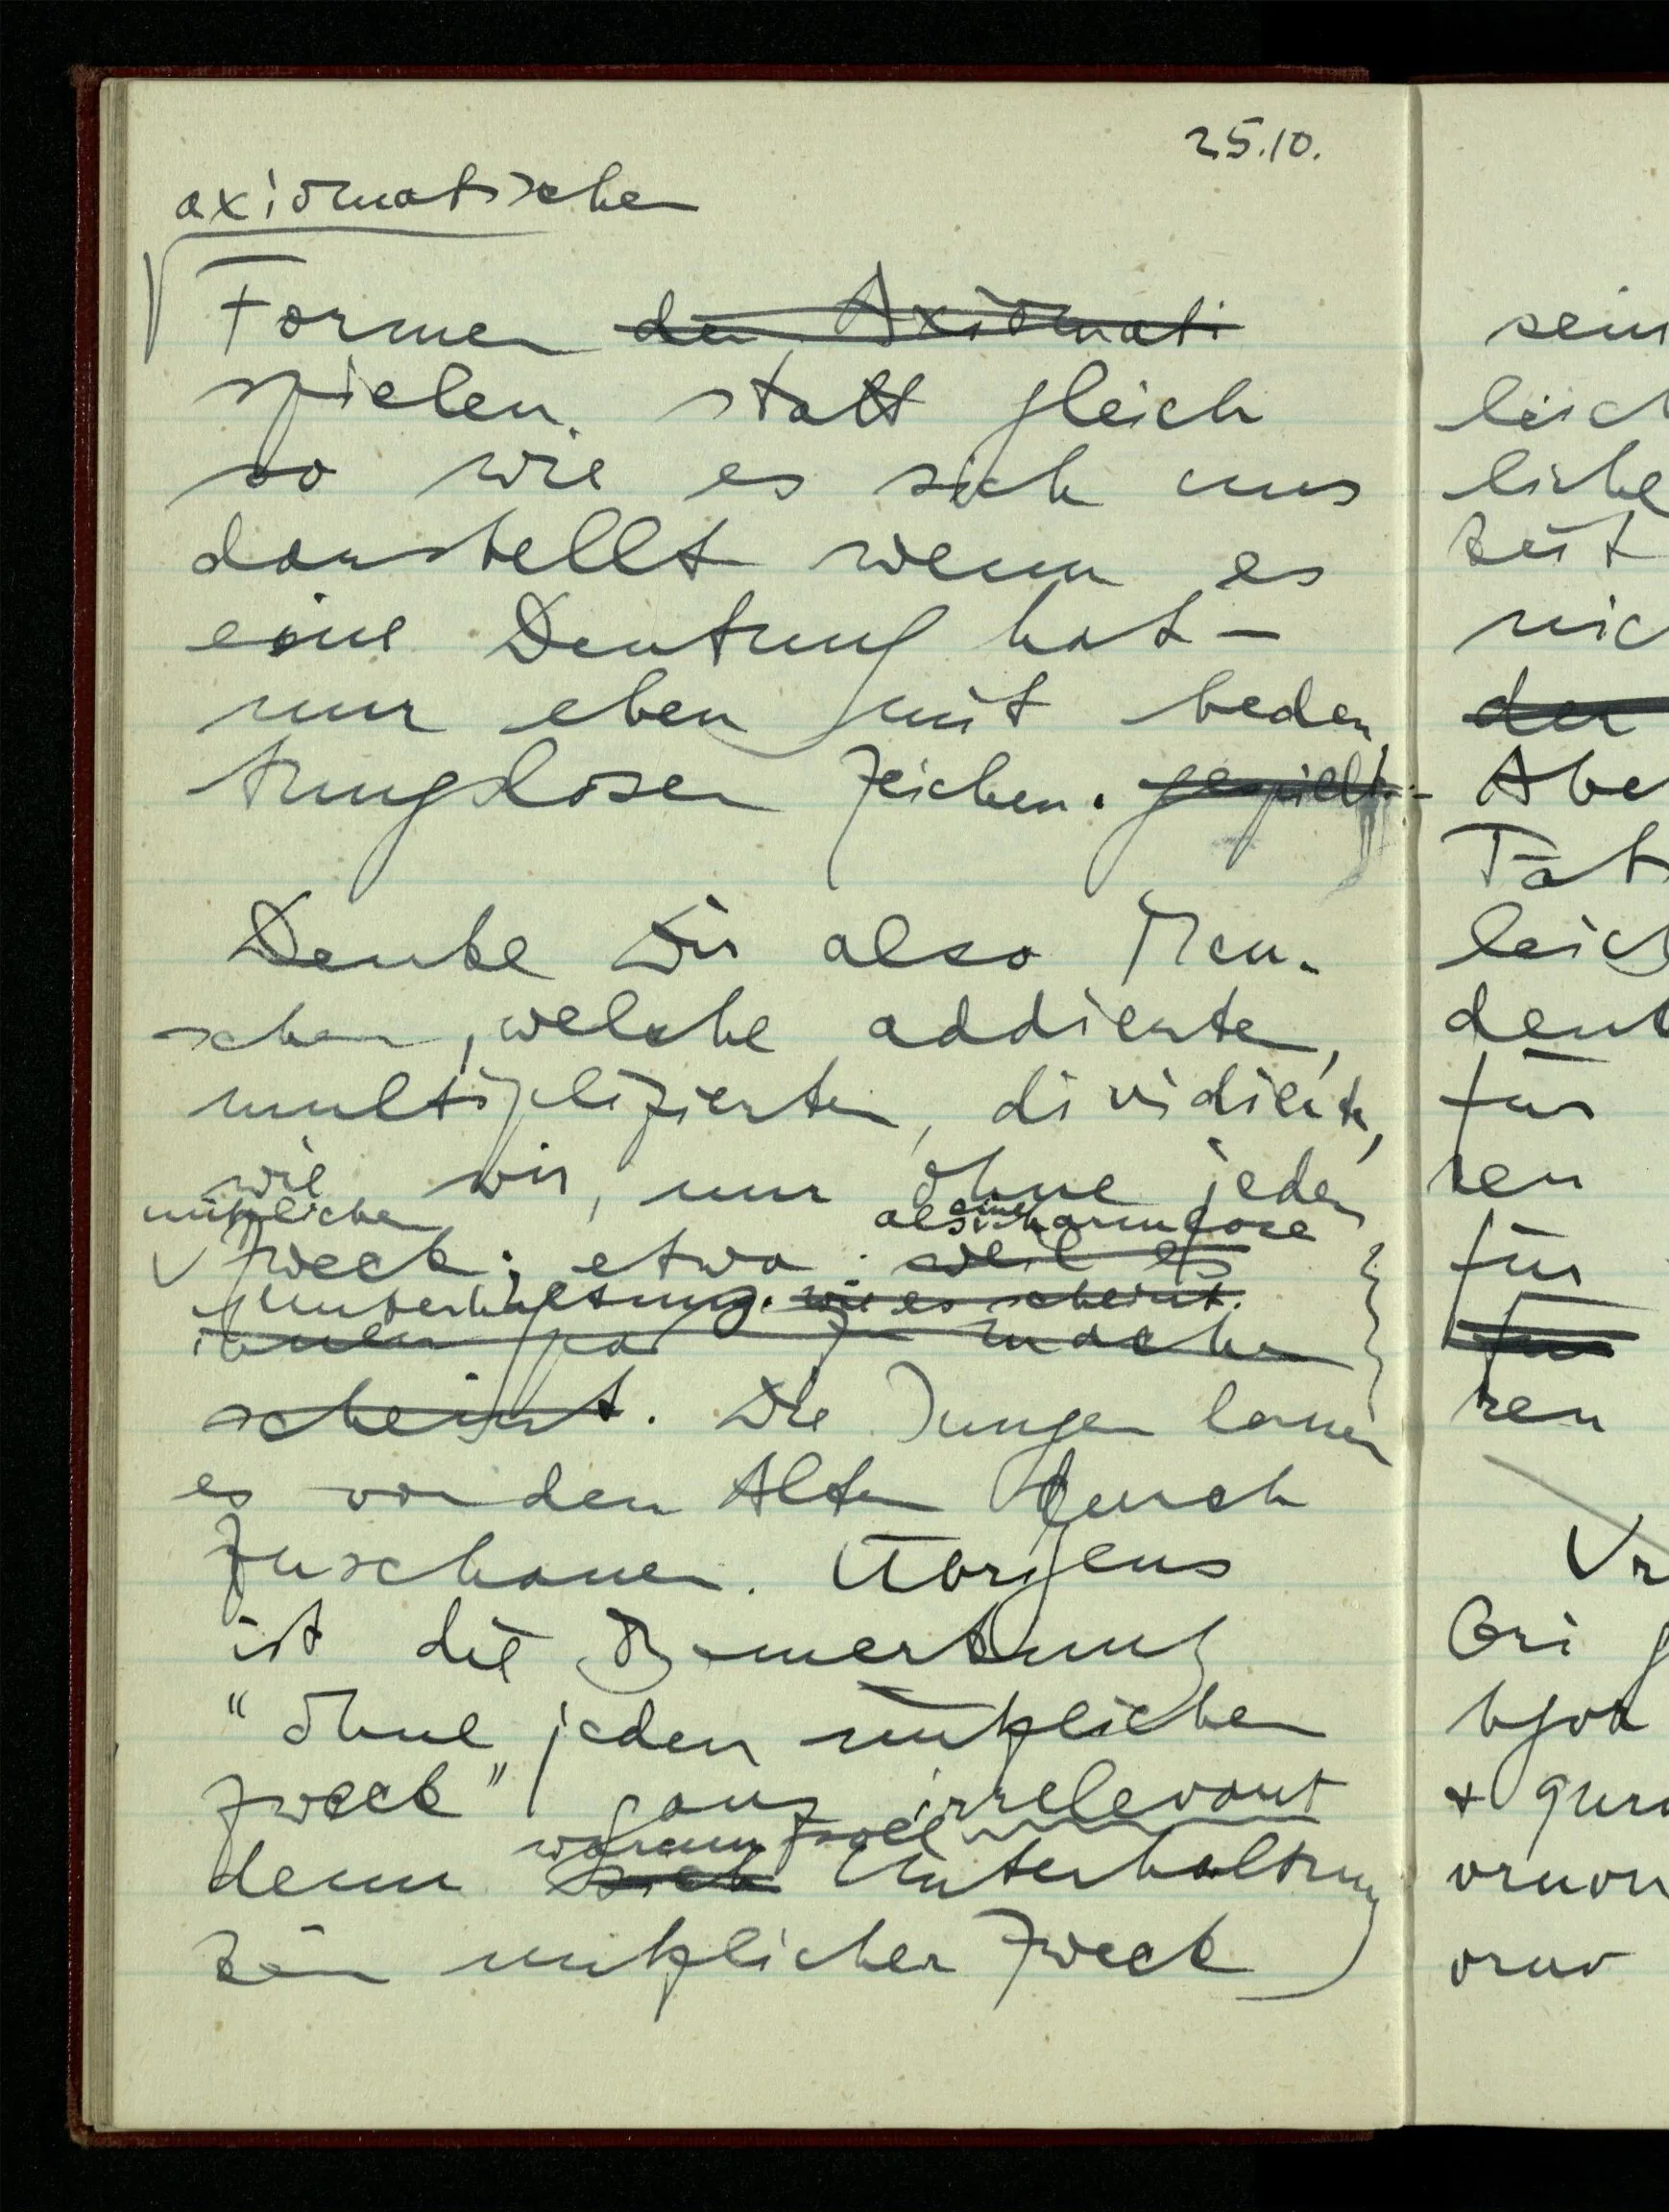 25.10.
axiomatischen
Formen der Axiomati
spielen, statt gleich
so wie es sich uns
darstellt wenn es
eine Deutung hat –
nur eben mit bedeu
tungslosen Zeichen. gespielt.
Denke Dir also Men-
schen, welche addierten,
multiplizierten, dividierten,
wie wir, nur ohne jeden
nützlichen
als eine harmlose
Zweck; etwa weil es
Unterhaltung. wie es scheint.
ihnen Spaß zu machen
scheint. Die Jungen lernen
es von den Alten durch
Zuschauen. Übrigens
ist die Bemerkung
"ohne jeden nützlichen
Zweck" ganz irrelevant
warum soll
denn sich Unterhaltung
kein nützlicher Zweck
sein
leich
liche
keit
nic
der
Abe
Tat
leic
deut
für
ren
für
für
ren
Ur
Ori